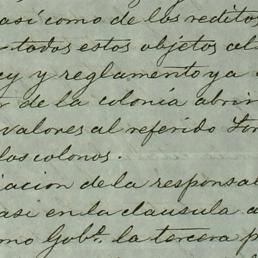 así como de los reditos
todos estos objetos al
ey y reglamento ya
r de la colonia abrir
valores al referido
los colonos.
iacion de la responsal
asi en la clausula a
mo Gobte. la tercera p